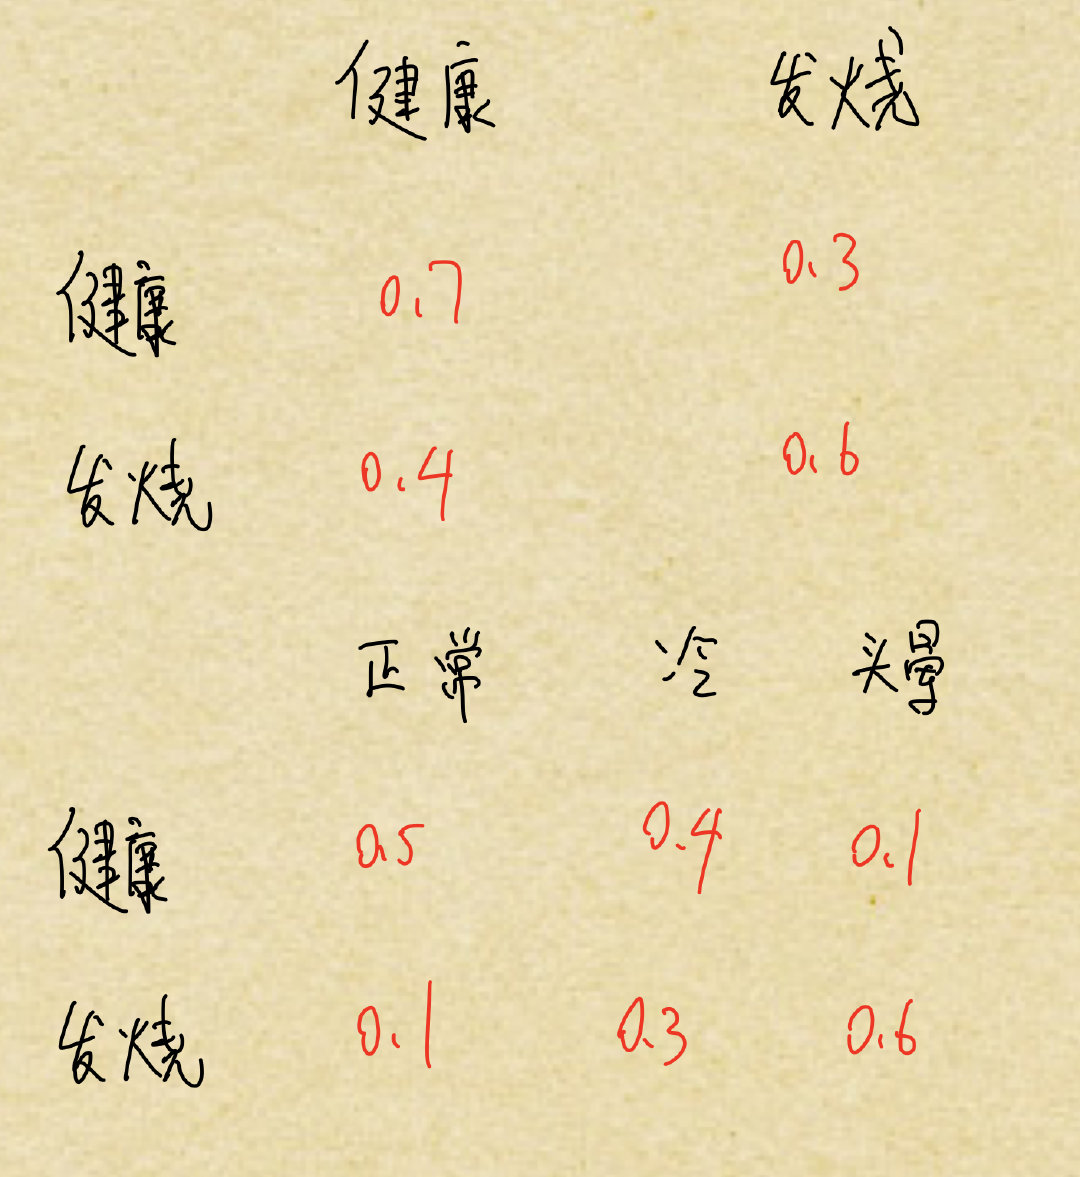 健康 发烧
健康 0.7 0.3
发烧 0.4 0.6
正常 冷 头晕
健康 0.5 0.4 0.1
发烧 0.1 0.3 0.6